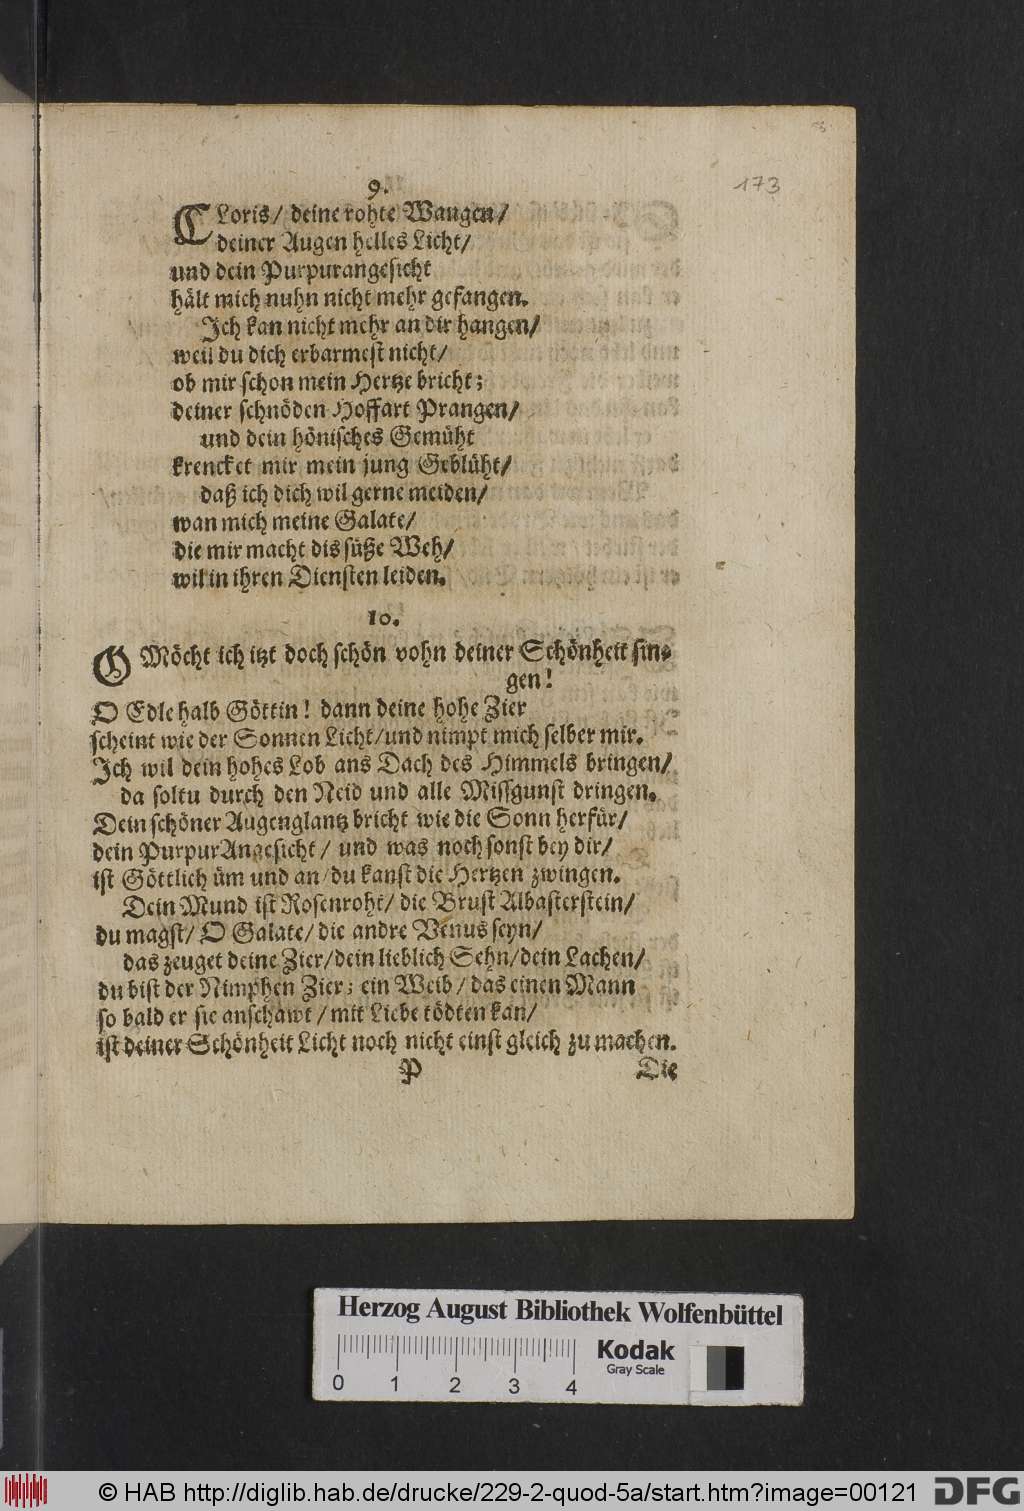 173
9.
CLoris/ deine rohte Wangen/
deiner Augen helles Licht/
und dein Purpurangesicht
hält mich nuhn nicht mehr gefangen.
Ich kan nicht mehr an dir hangen/
weil du dich erbarmest nicht/
ob mir schon mein Hertze bricht;
deiner schnöden Hoffart Prangen/
und dein hönisches Gemüht
krencket mir mein jung Geblüht/
daß ich dich wil gerne meiden/
wan mich meine Galate/
die mir macht dis süße Weh/
wil in ihren Diensten leiden.
10.
O Möcht ich itzt doch schön vohn deiner Schönheit sin-
gen!
O Edle halb Göttin! dann deine hohe Zier
scheint wie der Sonnen Licht/und nimpt mich selber mir.
Ich wil dein hohes Lob ans Dach des Himmels bringen/
da soltu durch den Neid und alle Missgunst dringen.
Dein schöner Augenglantz bricht wie die Sonn herfür/
dein PurpurAngesicht/ und was noch sonst bey dir/
ist Göttlich üm und an/du kanst die Hertzen zwingen.
Dein Mund ist Rosenroht/ die Brust Albasterstein/
du magst/ O Galate/ die andre Venus seyn/
das zeuget deine Zier/dein lieblich Sehn/dein Lachen/
du bist der Nimphen Zier; ein Weib/ das einen Mann
so bald er sie anschawt/mit Liebe tödten kan/
ist deiner Schönheit Licht noch nicht einst gleich zu machen.
P Die
Herzog August Bibliothek Wolfenbüttel
Kodak
Gray Scale
0 1 2 3 4
© HAB http://diglib.hab.de/drucke/229-2-quod-5a/start.htm?image=00121
DFG